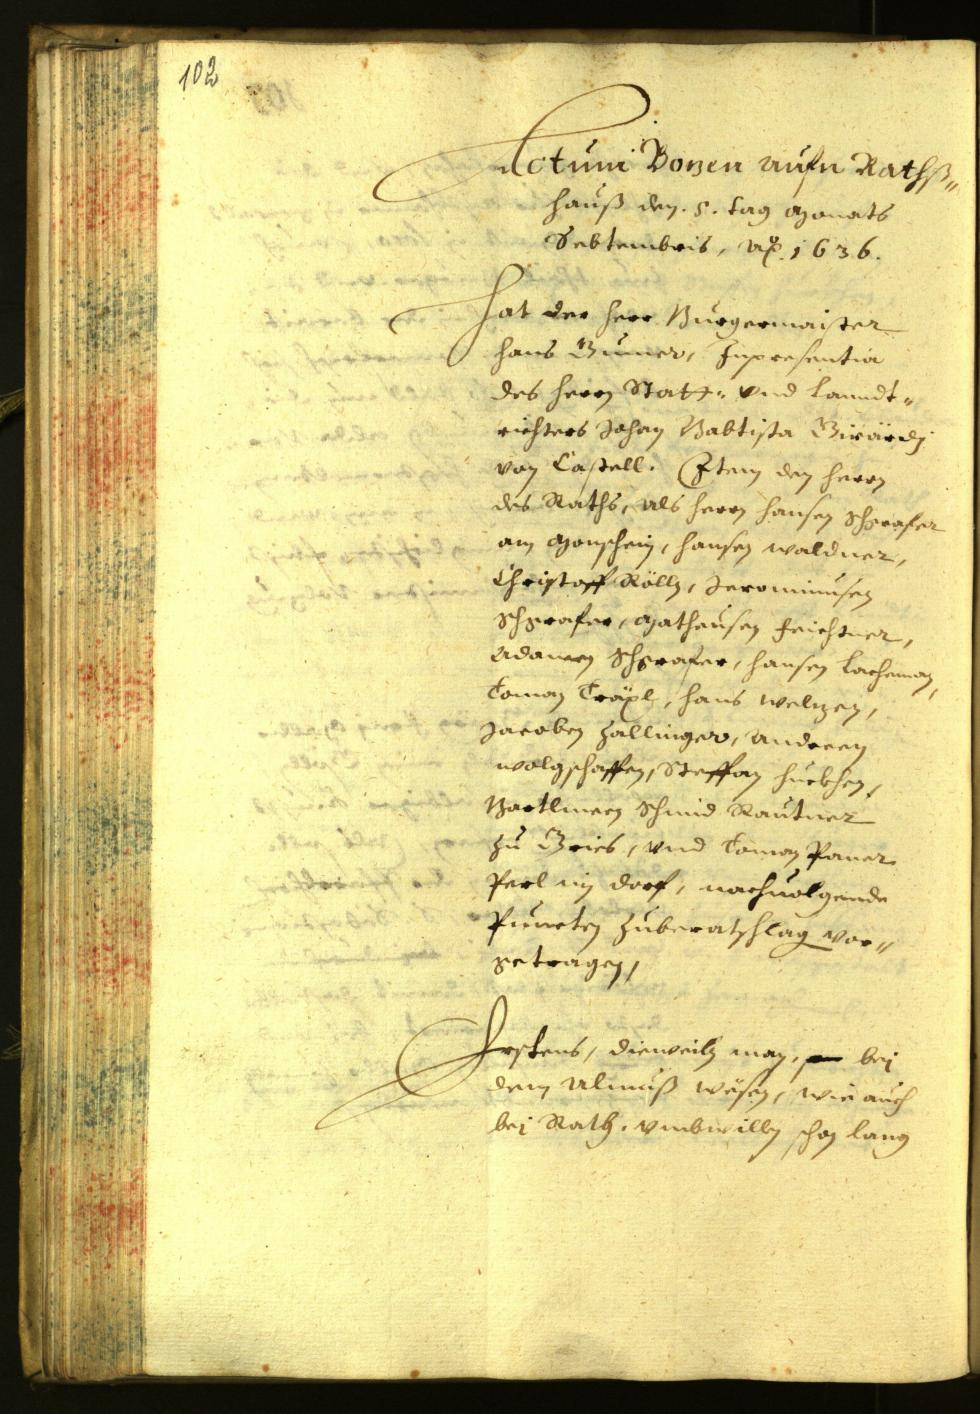 102
Actum Bozen aufn Rathß„
hauß den. 5. tag Monats
Septembris, A͠o. 1636.
Hat der herr Burgermaister
hans Gumer, Inpresentia
des herrn Statt„ vnd Lanndt„
richters Johan Babtista Girardj
von Castell. Item den herrn
des Raths, als herrn hansen Schgrafer
am Monschein, hansen Waldner,
Christoff Röllj, Jeronimusen
Schgrafer, Matheusen Feichtner,
Adamen Schgrafer, hansen Lacheman,
Toman Träxl, hans Welzen,
Jacoben Zallinger, Andreen
Wolgschaffen, Steffan huebher,
Bartlmeen Schmid Rautner
zu Gries, vnd Toman Paur
Perl im dorf, nachuolgende
Puncten zuberatschlag vor„
getragen,
Erstens, dieweiln man, bej
dem Almuß wësen, wie auch
bej Rath. vmbwilln schon lang